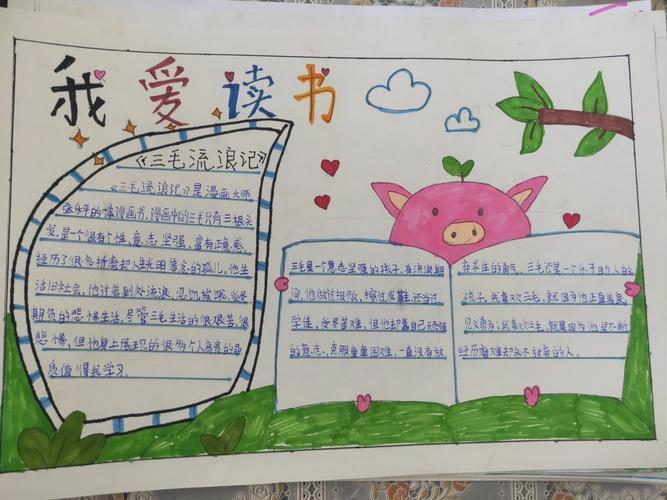 我爱读书
《三毛流浪记》
《三毛流浪记》是漫画大师
张乐平的一本漫画书,漫画中的三毛只有三根头
发,是一个很有个性,意志坚强,富有正感,
经历了很多折磨却人生信念的孤儿。他生
活旧社会,他过着到处流浪、忍饥挨饿、受尽
期负的悲惨生活,尽管三毛生活的很艰苦,很
悲惨,但他身上展现的很多个人高贵的品
质值得我学习。
三毛是一个意志坚强的孩子,在流浪期
间,他做过报贩,擦过皮鞋,还当过
学徒,受尽苦难,但他却靠自己顽强
的意志、克服重重困难,一直没有放
弃求生的勇气。三毛还是一个乐于助人的
孩子,我喜欢三毛,就因为他正直善良,
见义勇为;我喜欢三毛,就是因为他是不断
经历磨难却永不放弃的人。